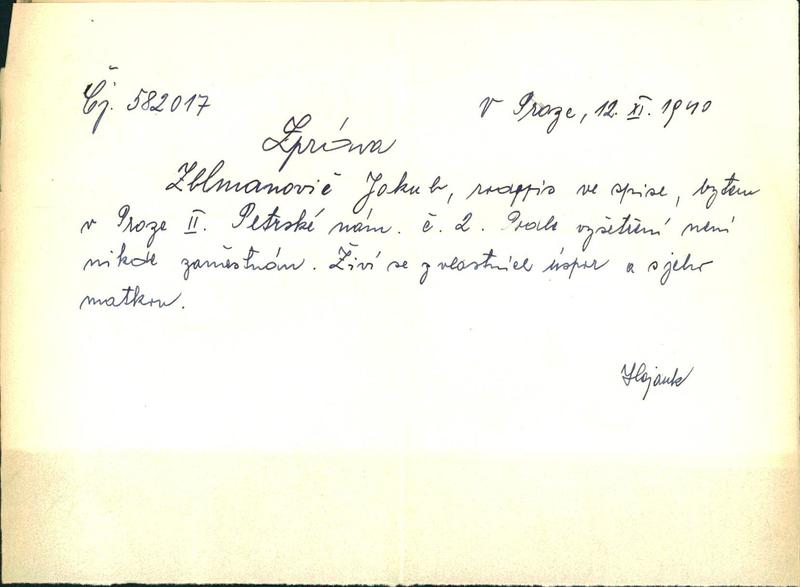 Čj. 582017 V Praze, 12. XI. 1940
Zpráva
Jakub, ve spise, bytem
v Praze II. Petrské nám. č. 2. Podle vyšetření není
nikde zaměstnán. Živí se z vlastních úspor a s jeho
matkou.